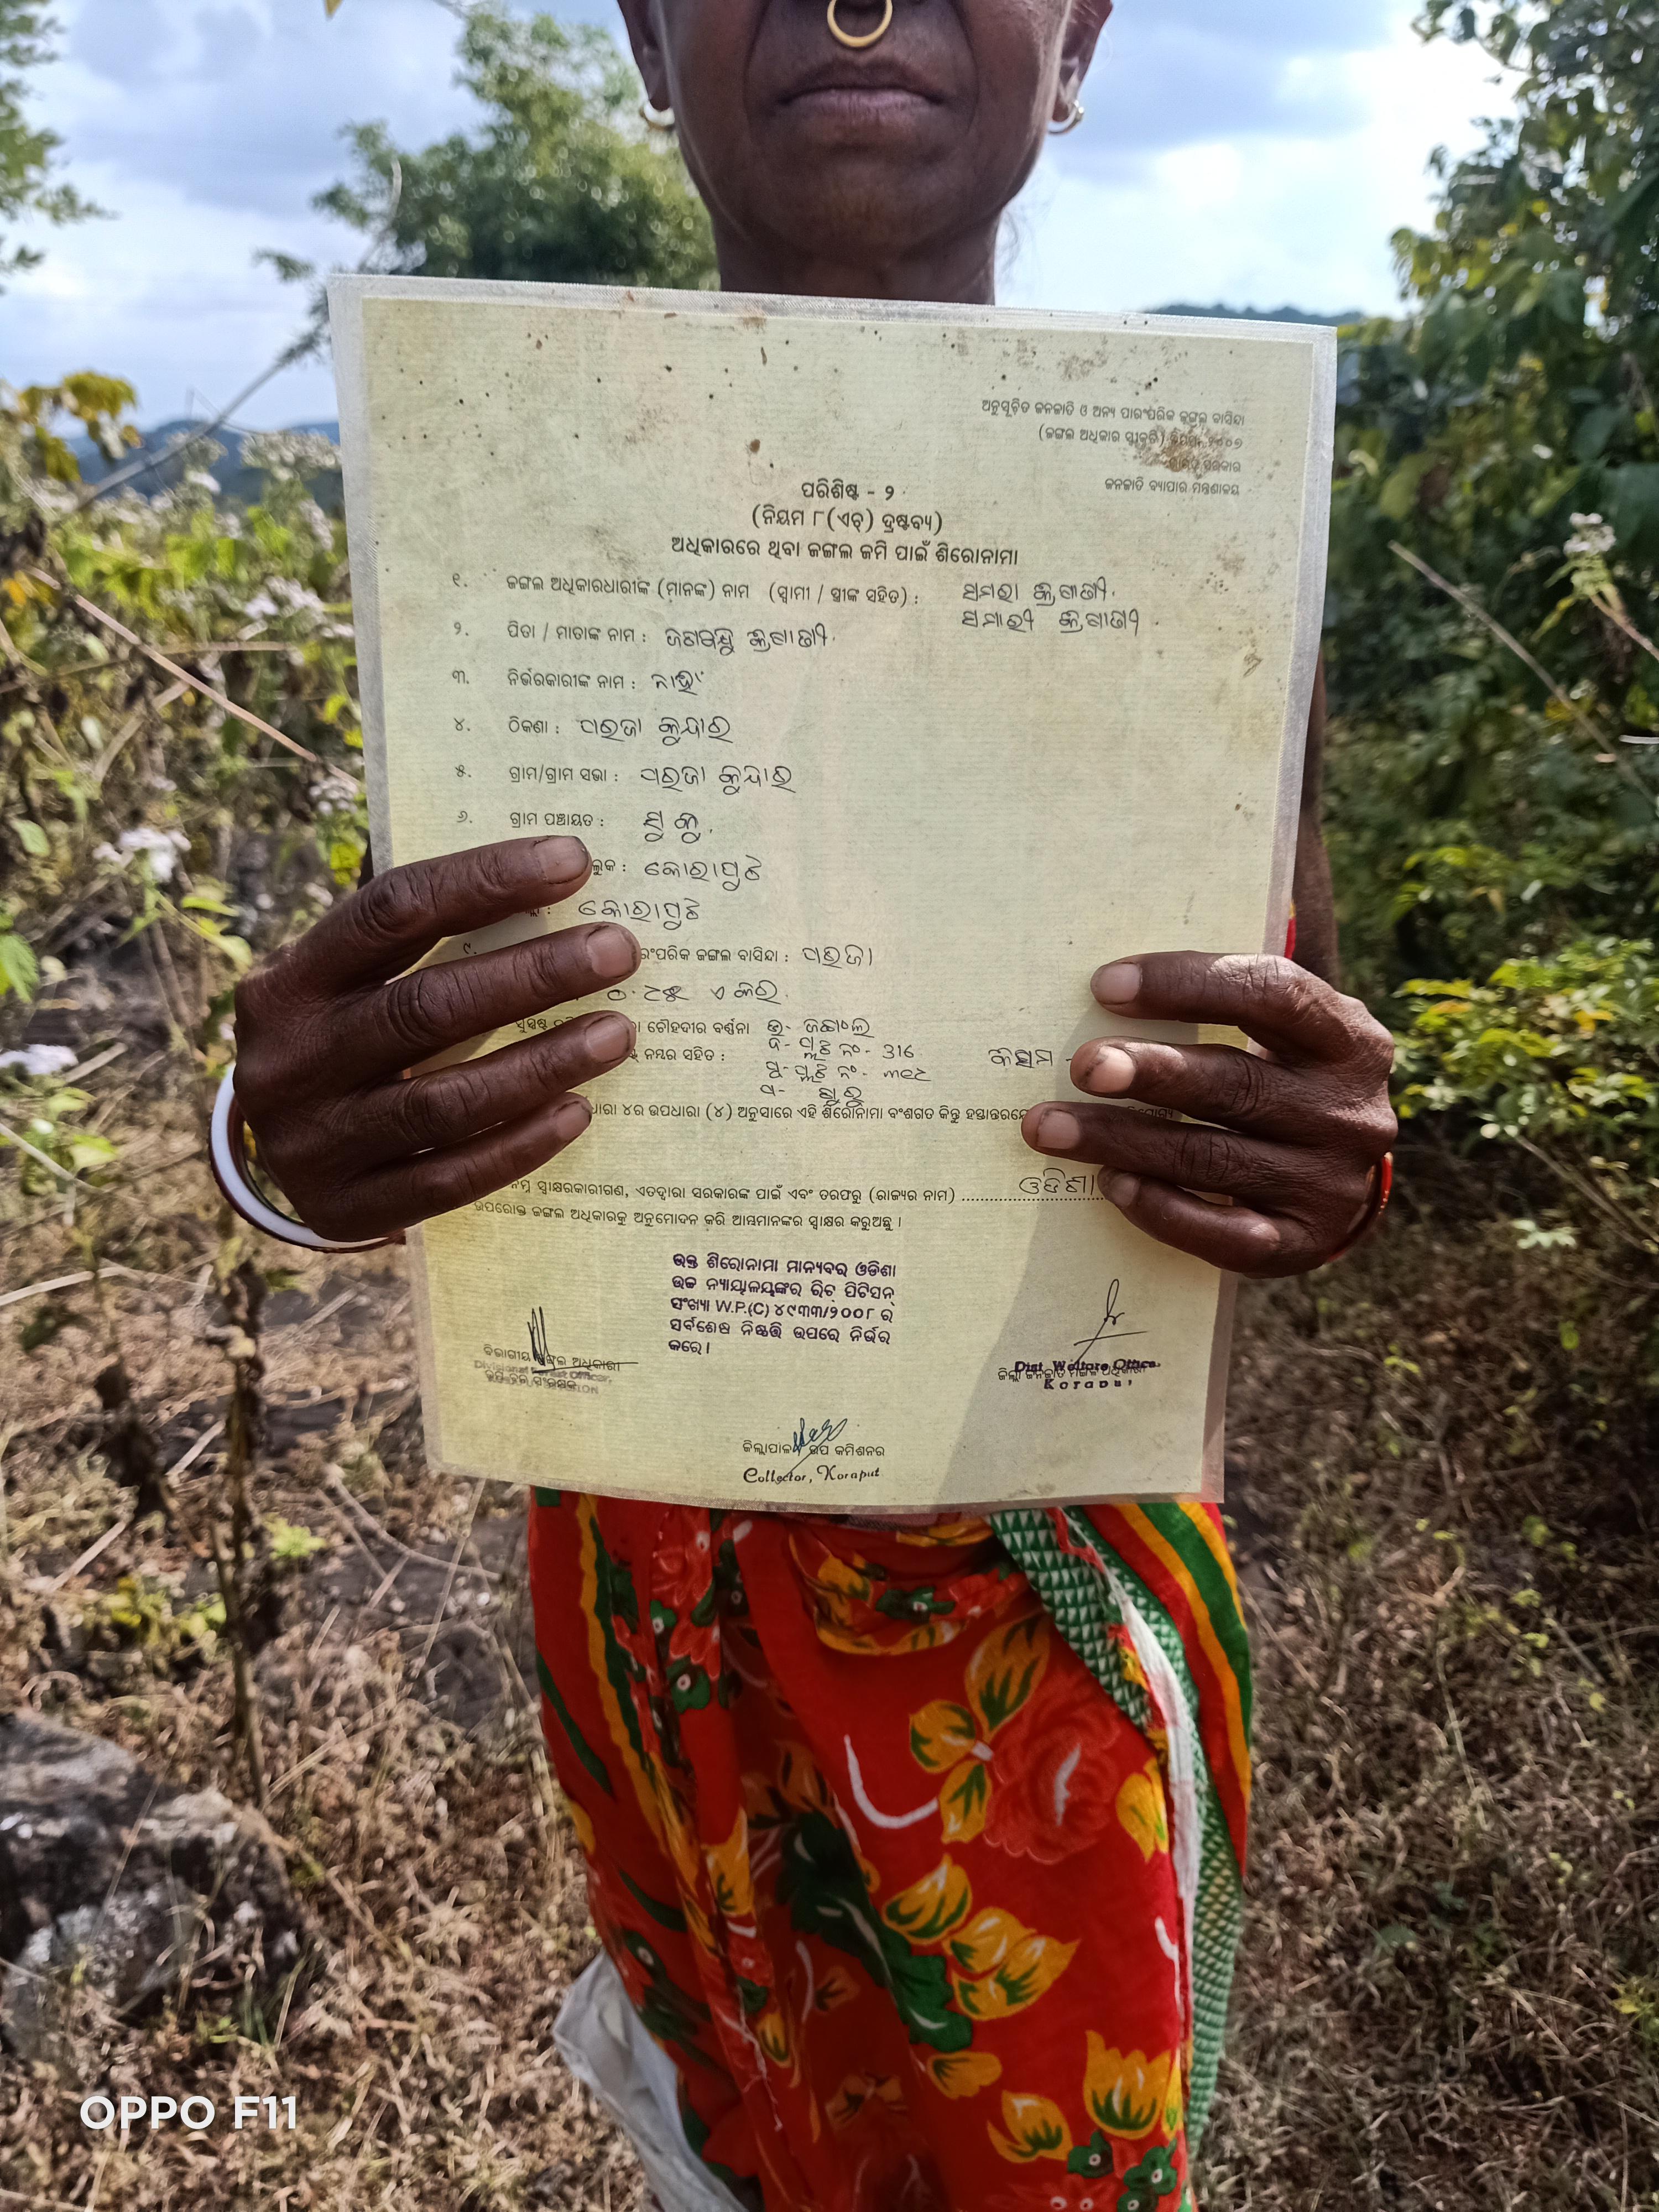 ଅନୁସୂଚିତ ଜନଜାତି ଓ ଅନ୍ୟ ପାରଂପରିକ ଜଙ୍ଗଲ ବାସିନ୍ଦା
(ଜଙ୍ଗଲ ଅଧିକାର ସ୍ୱୀକୃତି) ନିୟମ ୨୦୦୭
ଭାରତ ସରକାର
ଜନଜାତି ବ୍ୟାପାର ମନ୍ତ୍ରଣାଳୟ
ପରିଶିଷ୍ଟ - ୨
(ନିୟମ ୮(ଏଚ୍) ଦ୍ରଷ୍ଟବ୍ୟ)
ଅଧିକାରରେ ଥିବା ଜଙ୍ଗଲ ଜମି ପାଇଁ ଶିରୋନାମା
୧. ଜଙ୍ଗଲ ଅଧିକାରଧାରୀଙ୍କ (ମାନଙ୍କ) ନାମ (ସ୍ୱାମୀ / ସ୍ତ୍ରୀଙ୍କ ସହିତ) : ସମରା
ସମାରୀ
୨. ପିତା / ମାତାଙ୍କ ନାମ : ଜଗବନ୍ଧୁ
୩. ନିର୍ଭରକାରୀଙ୍କ ନାମ : ନାହିଁ
୪. ଠିକଣା : ପରଜା କୁନ୍ଦାର
୫. ଗ୍ରାମ/ଗ୍ରାମ ସଭା : ପରଜା କୁନ୍ଦାର
୬. ଗ୍ରାମ ପଞ୍ଚାୟତ : ସୁକୁ
ଲୁକ : କୋରାପୁଟ
କୋରାପୁଟ
୯. ରଂପରିକ ଜଙ୍ଗଲ ବାସିନ୍ଦା : ପରଜା
ଏକର
ଚୌହଦୀର ବର୍ଣ୍ଣନା ଉ- ଜଙ୍ଗଲ
ନମ୍ବର ସହିତ : ଦ- ପ୍ଲଟ ନଂ- 316
ପୁ- ପ୍ଲଟ ନଂ-
ପ-
ଧାରା ୪ର ଉପଧାରା (୪) ଅନୁସାରେ ଏହି ଶିରୋନାମା ବଂଶଗତ କିନ୍ତୁ
ନିମ୍ନ ସ୍ୱାକ୍ଷରକାରୀଗଣ, ଏତଦ୍ୱାରା ସରକାରଙ୍କ ପାଇଁ ଏବଂ ତରଫରୁ (ରାଜ୍ୟର ନାମ) ........ ଓଡିଶା
ଉପରୋକ୍ତ ଜଙ୍ଗଲ ଅଧିକାରକୁ ଅନୁମୋଦନ କରି ଆମ୍ଭମାନଙ୍କର ସ୍ୱାକ୍ଷର କରୁଅଛୁ ।
ଉକ୍ତ ଶିରୋନାମା ମାନ୍ୟବର ଓଡିଶା
ଉଚ୍ଚ ନ୍ୟାୟାଳୟଙ୍କର ରିଟ୍ ପିଟିସନ୍
ସଂଖ୍ୟା W.P.(C) ୪୯୩୩/୨୦୦୮ ର
ସର୍ବଶେଷ ନିଷ୍ପତ୍ତି ଉପରେ ନିର୍ଭର
କରେ ।
ବିଭାଗୀୟ ଜଙ୍ଗଲ ଅଧିକାରୀ
Dist Welfare Officer,
Koraput
ଜିଲ୍ଲାପାଳ ଉପ କମିଶନର
Collector, Koraput
OPPO F11